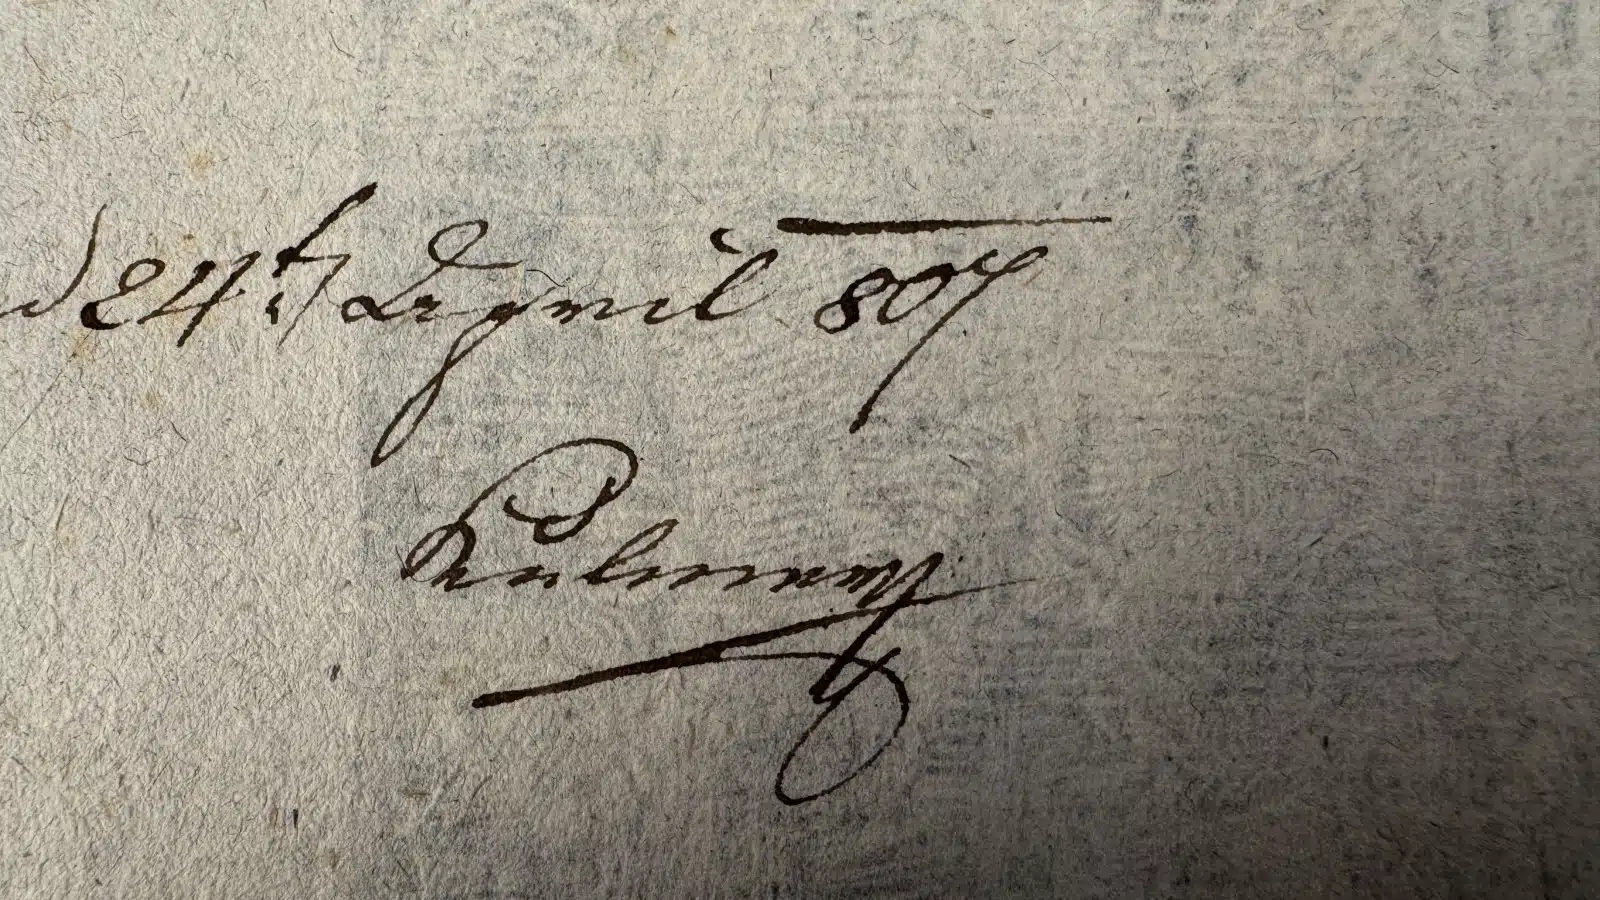 d 24t April 807
Kuhlmann